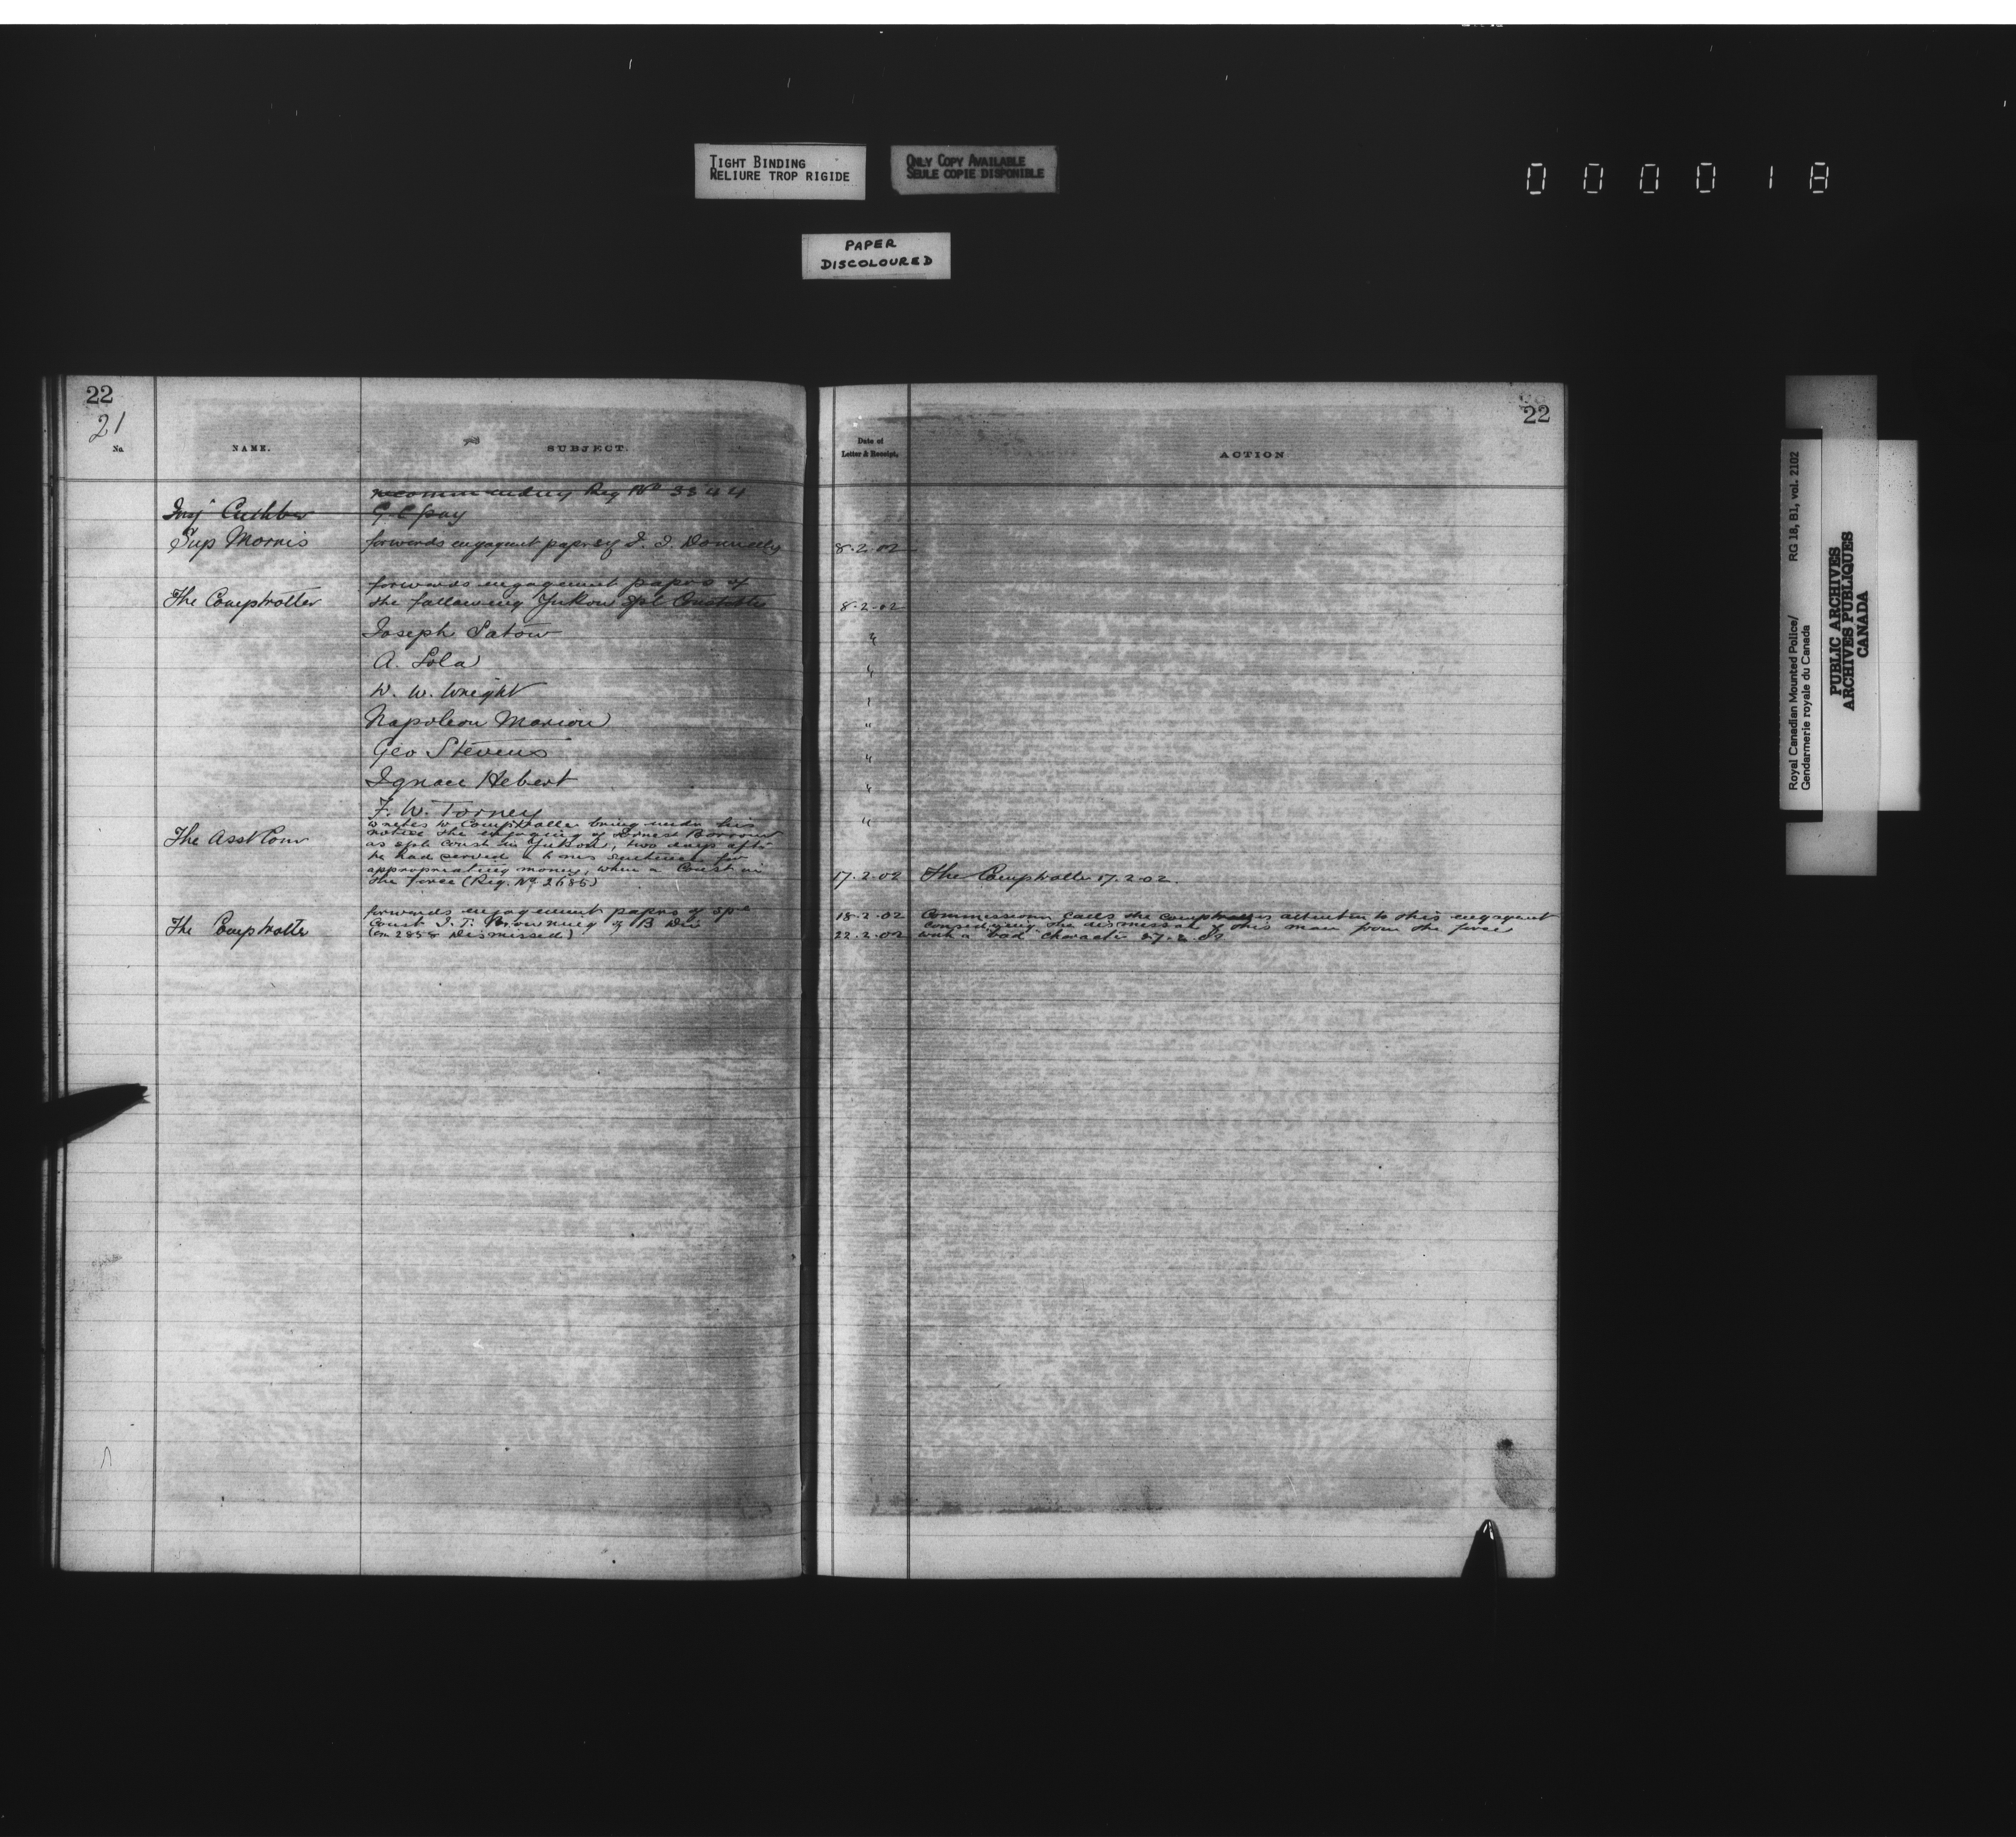 TIGHT BINDING
RELIURE TROP RIGIDE
ONLY COPY AVAILABLE
SEULE COPIE DISPONIBLE
PAPER
DISCOLOURED
0 0 0 0 1 8
22
21
No.
NAME.
SUBJECT.
recommending Reg No 3344
Insp Cuthber
G. C. pay
Sup Morris
forwards engagmt paprs of J. J. Donnelly
forwards engagement paprs of
The Comptroller
the following Yukon Spl Constables
Joseph Satow
A. Lola
W. W. Wright
Napoleon Marion
Geo Stevens
Ignace Hebert
F. W. Torney
writes to Comptroller bring under his
notice the engaging of Ernest
The Asst Com
as spl const in Yukon, two days aft
he had served a sentence for
appropriating money, when a Const in
the force (Reg. No 2685)
forwards engagement paprs of spe
The Comptroller
Const J. T. Browning of B Div
(on 2858 Dismissed)
22
Date of
Letter & Receipt.
ACTION
8.2.02
8.2.02
"
"
"
"
"
"
"
17.2.02 The Comptroller 17.2.02.
18.2.02 Commissioner calls the comptrollers attention to this engagemt
considering the dismissal of this man from the force
22.2.02 with a bad character 27.2.02
Royal Canadian Mounted Police/ RG 18, B1, vol. 2102
Gendarmerie royale du Canada
PUBLIC ARCHIVES
ARCHIVES PUBLIQUES
CANADA